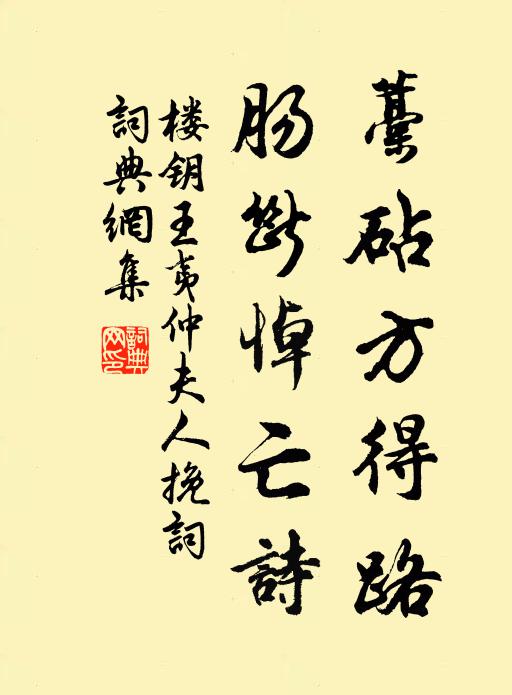 藁砧方得路
肠断悼亡詩
楼钥王夷仲夫人挽詞
詞典網集
詞典网印